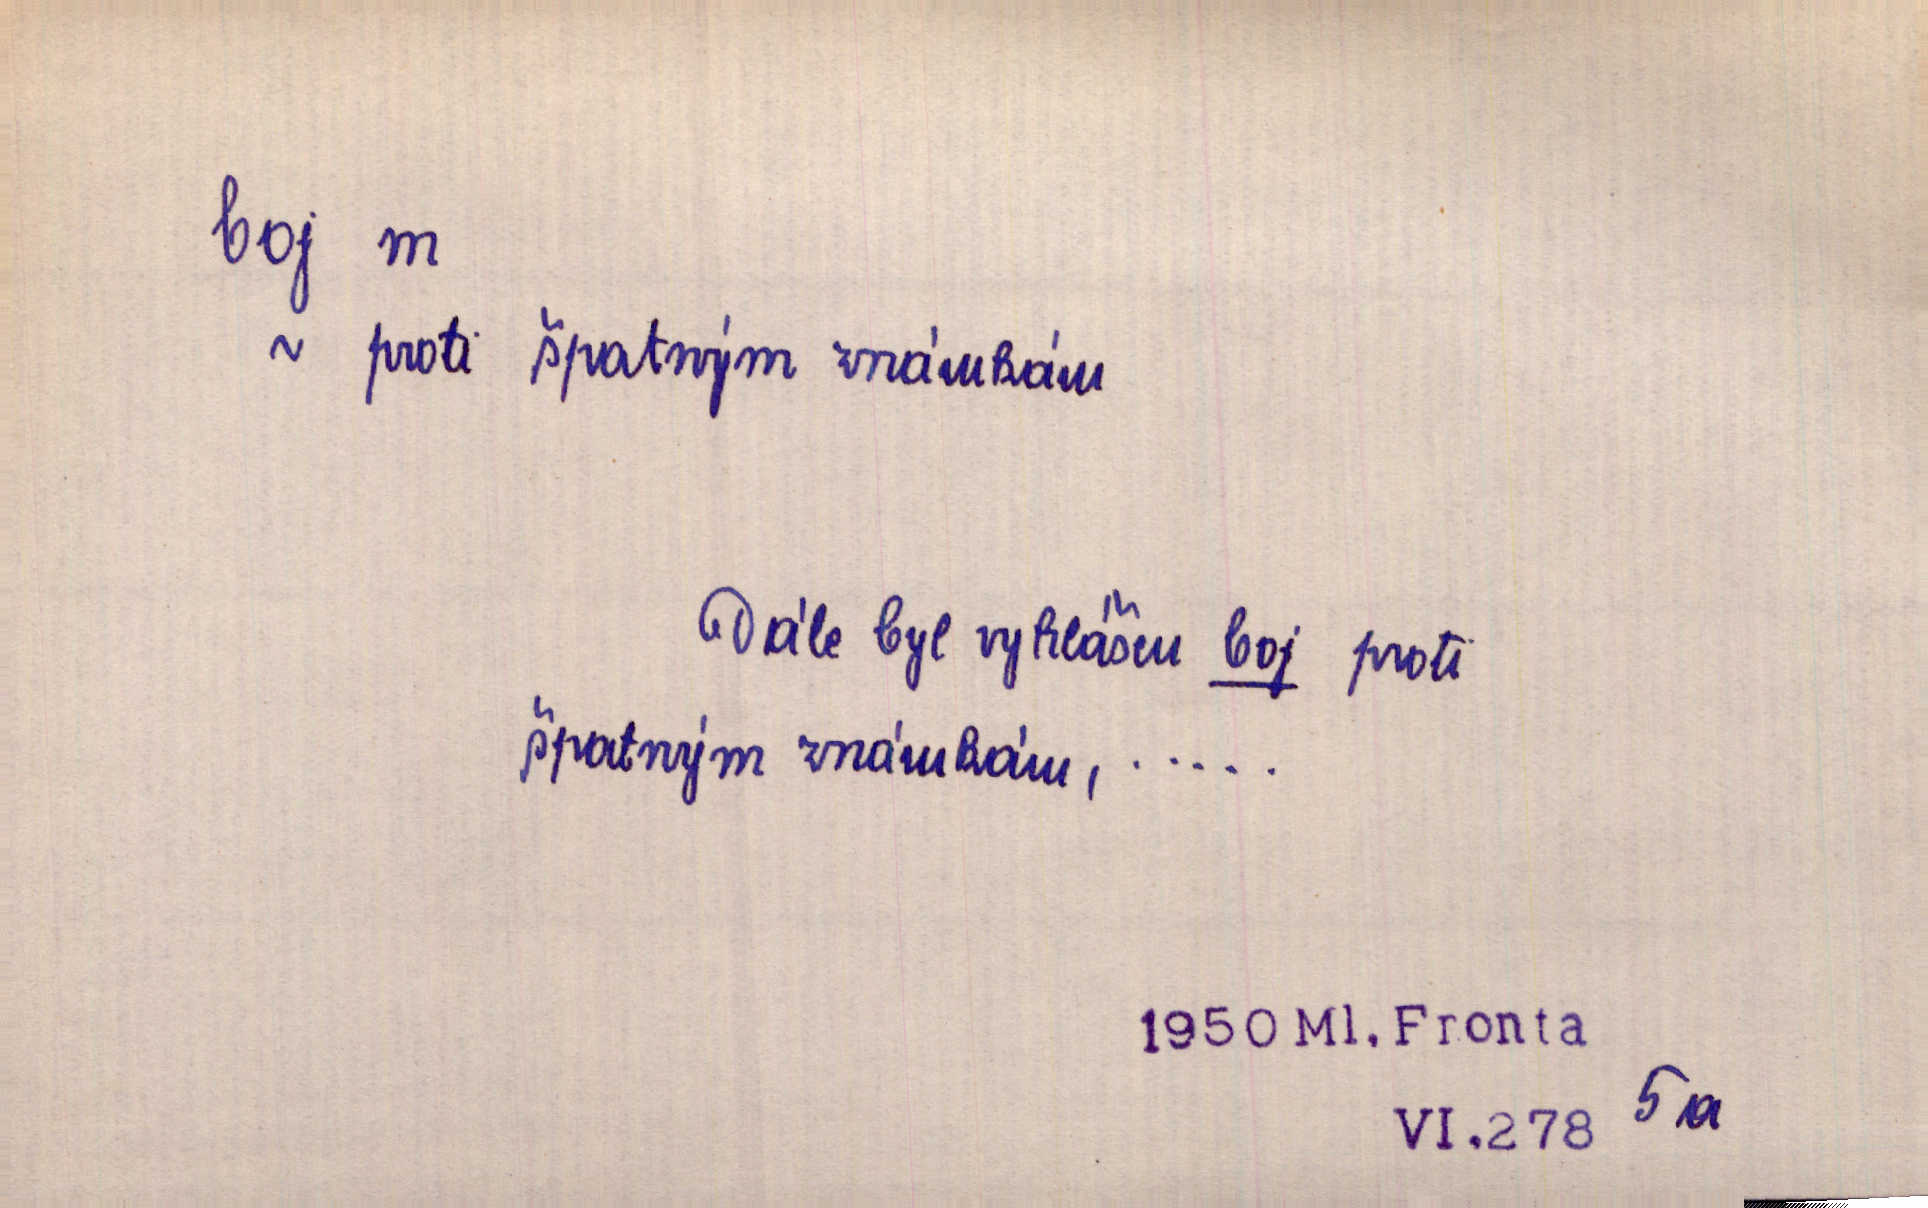 boj m
~ proti špatným známkám
Dále byl vyhlášen boj proti
špatným známkám, .....
1950 Ml. Fronta
VI.278 5a